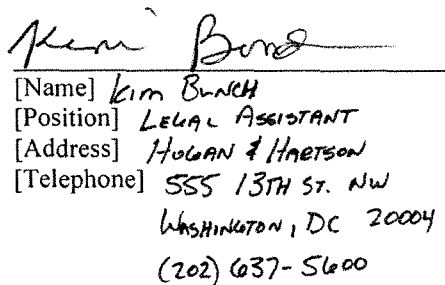 [Name] Kim Bunch
[Position] LEGAL ASSISTANT
[Address] HOGAN & HARTSON
[Telephone] 555 13TH ST. NW
WASHINGTON, DC 20004
(202) 637-5600